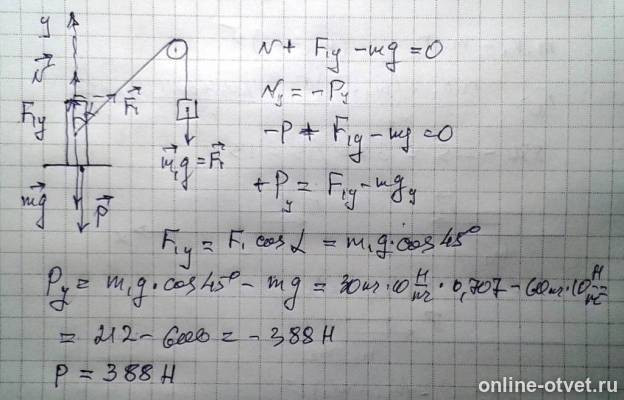 y
N⃗
F₁y
α
F⃗₁
m⃗₁g = F⃗₁
m⃗g
P⃗
N + F₁y - mg = 0
Ny = -Py
-P + F₁y - mg = 0
+Py = F₁y - mgy
F₁y = F₁ cos α = m₁g · cos 45°
Py = m₁g · cos 45° - mg = 30кг · 10 Н/кг · 0,707 - 60кг · 10 Н/кг
= 212 - 600 = - 388 Н
P = 388 Н
online-otvet.ru